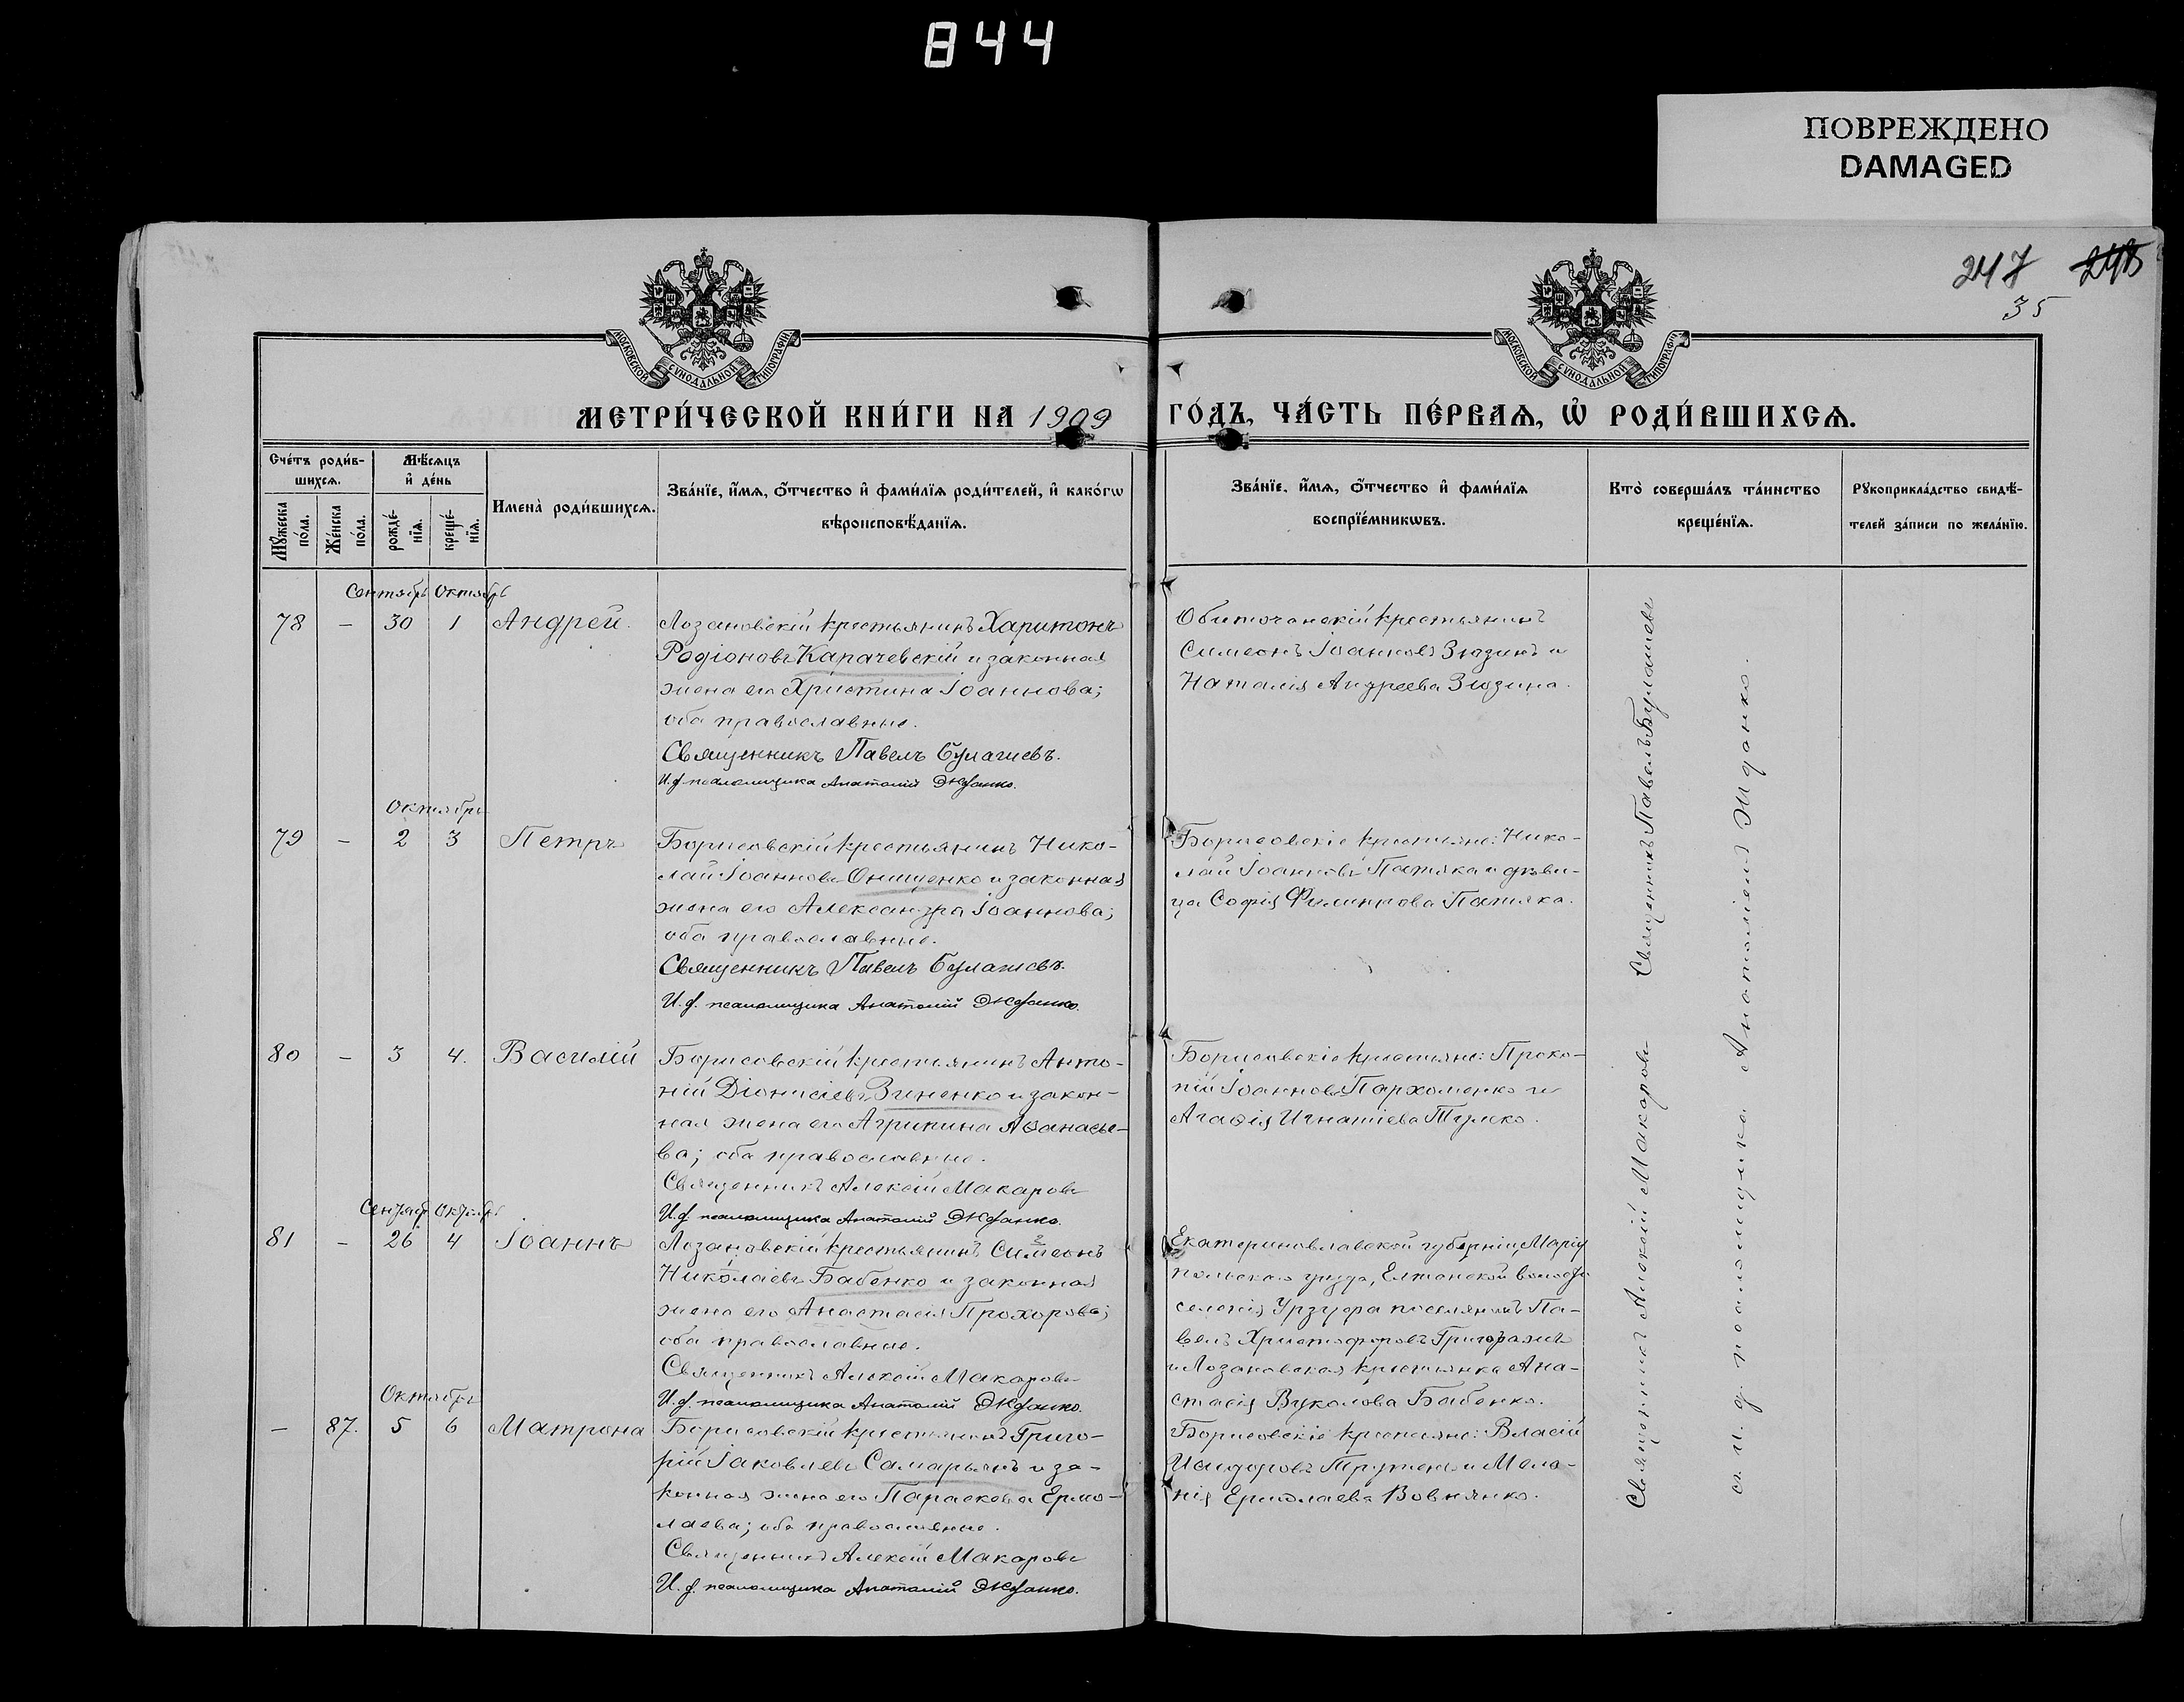 844
ПОВРЕЖДЕНО
DAMAGED
247 248
35
МОСКОВСКОЙ СѴНОДАЛЬНОЙ ТИПОГРАФІИ
МОСКОВСКОЙ СѴНОДАЛЬНОЙ ТИПОГРАФІИ
МЕТРИ́ЧЕСКОЙ КНИ́ГИ НА 1909 ГО́ДЪ, ЧА́СТЬ ПЕ́РВАѦ, Ѡ҆ РОДИ́ВШИХСѦ.
Сче́тъ роди́в-
шихсѧ.
Мꙋ́жеска по́ла.
Же́нска по́ла.
Мѣ́сѧцъ
и҆ де́нь
рожде́-
нїѧ.
креще́-
нїѧ.
Имена̀ роди́вшихсѧ.
Зва́нїе, и҆́мѧ, ѻ҆́тчество и҆ фами́лїѧ роди́телей, и҆ како́гѡ
вѣроисповѣ́данїѧ.
Зва́нїе, и҆́мѧ, ѻ҆́тчество и҆ фами́лїѧ
воспрїе́мникѡвъ.
Кто̀ соверша́лъ та́инство
креще́нїѧ.
Рꙋкоприкла́дство свидѣ́-
телей за́писи по жела́нїю.
Сентябрь Октябрь
78 — 30 1 Андрей.
Лозановскій крестьянинъ Харитонъ
Родіоновъ Карачевскій и законная
жена его Христина Іоаннова;
оба православные.
Священникъ Павелъ Булашевъ.
И. д. псаломщика Анатолій Жданко.
Обиточанскій крестьянинъ
Симеонъ Іоанновъ Зюзинъ и
Наталія Андреева Зюзина.
Октябрь
79 — 2 3 Петръ
Борисовскій крестьянинъ Нико-
лай Іоанновъ Онищенко и законная
жена его Александра Іоаннова;
оба православные.
Священникъ Павелъ Булашевъ.
И. д. псаломщика Анатолій Жданко.
Борисовскіе крестьяне: Нико-
лай Іоанновъ Патяка и дѣви-
ца Софія Филиппова Патяка.
80 — 3 4. Василій
Борисовскій крестьянинъ Анто-
ній Діонисіевъ Зиненко и закон-
ная жена его Агрипина Аѳанасье-
ва; оба православные.
Священникъ Алексій Макаровъ
И. д. псаломщика Анатолій Жданко.
Борисовскіе крестьяне: Проко-
пій Іоанновъ Пархоменко и
Агаѳія Игнатіева
Сентябр. Октябрь
81 — 26 4 Іоаннъ
Лозановскій крестьянинъ Симеонъ
Николаевъ Бабенко и законная
жена его Анастасія Прохорова;
оба православные.
Священникъ Алексій Макаровъ
И. д. псаломщика Анатолій Жданко.
Екатеринославской губерніи, Маріу
польскаго уѣзда, волости
селенія Урзуфа поселянинъ Па-
велъ Христофоровъ
и Лозановская крестьянка Ана-
стасія Вуколова Бабенко.
Октябрь
— 87. 5 6 Матрона
Борисовскій крестьянинъ Григо-
рій Іаковлевъ Самарьянъ и за-
конная жена его Параскева Ермо-
лаева; оба православные.
Священникъ Алексій Макаровъ
И. д. псаломщика Анатолій Жданко.
Борисовскіе крестьяне: Власій
Исидоровъ и Мела-
нія Ермолаева Вовнянко.
Священникъ Алексій Макаровъ Священникъ Павелъ Булашевъ
съ и. д. псаломщика Анатоліемъ Жданко.